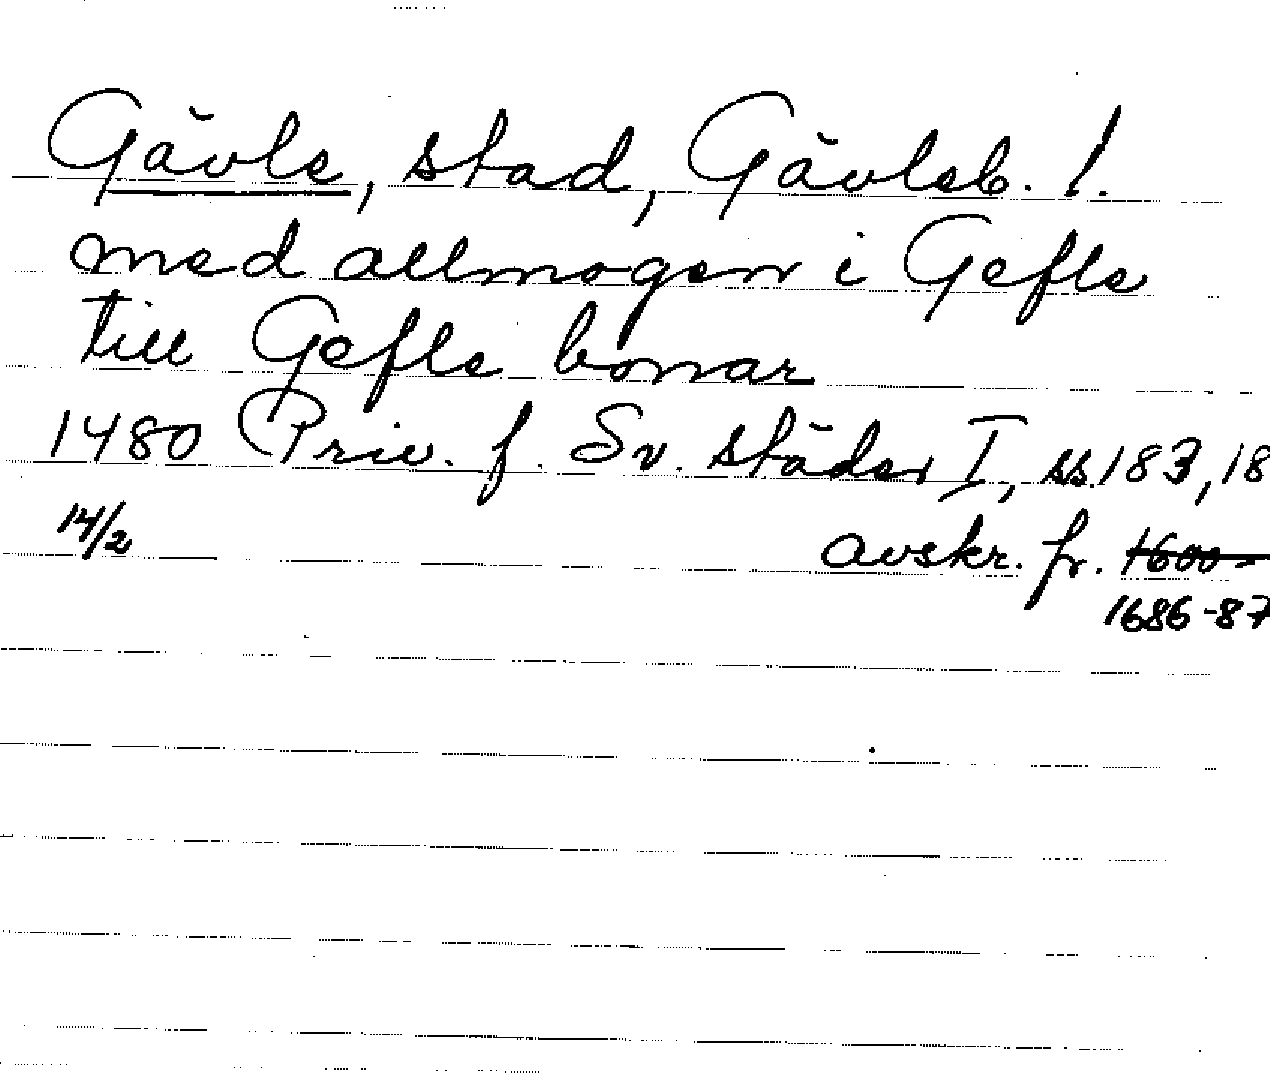 Gävle, stad, Gävleb. l.
med allmogen i Gefle
till Gefle bonar
1480 Priv. f. Sv. städer I, ss. 183, 18
14/2 avskr. fr. 1600-
1686-87